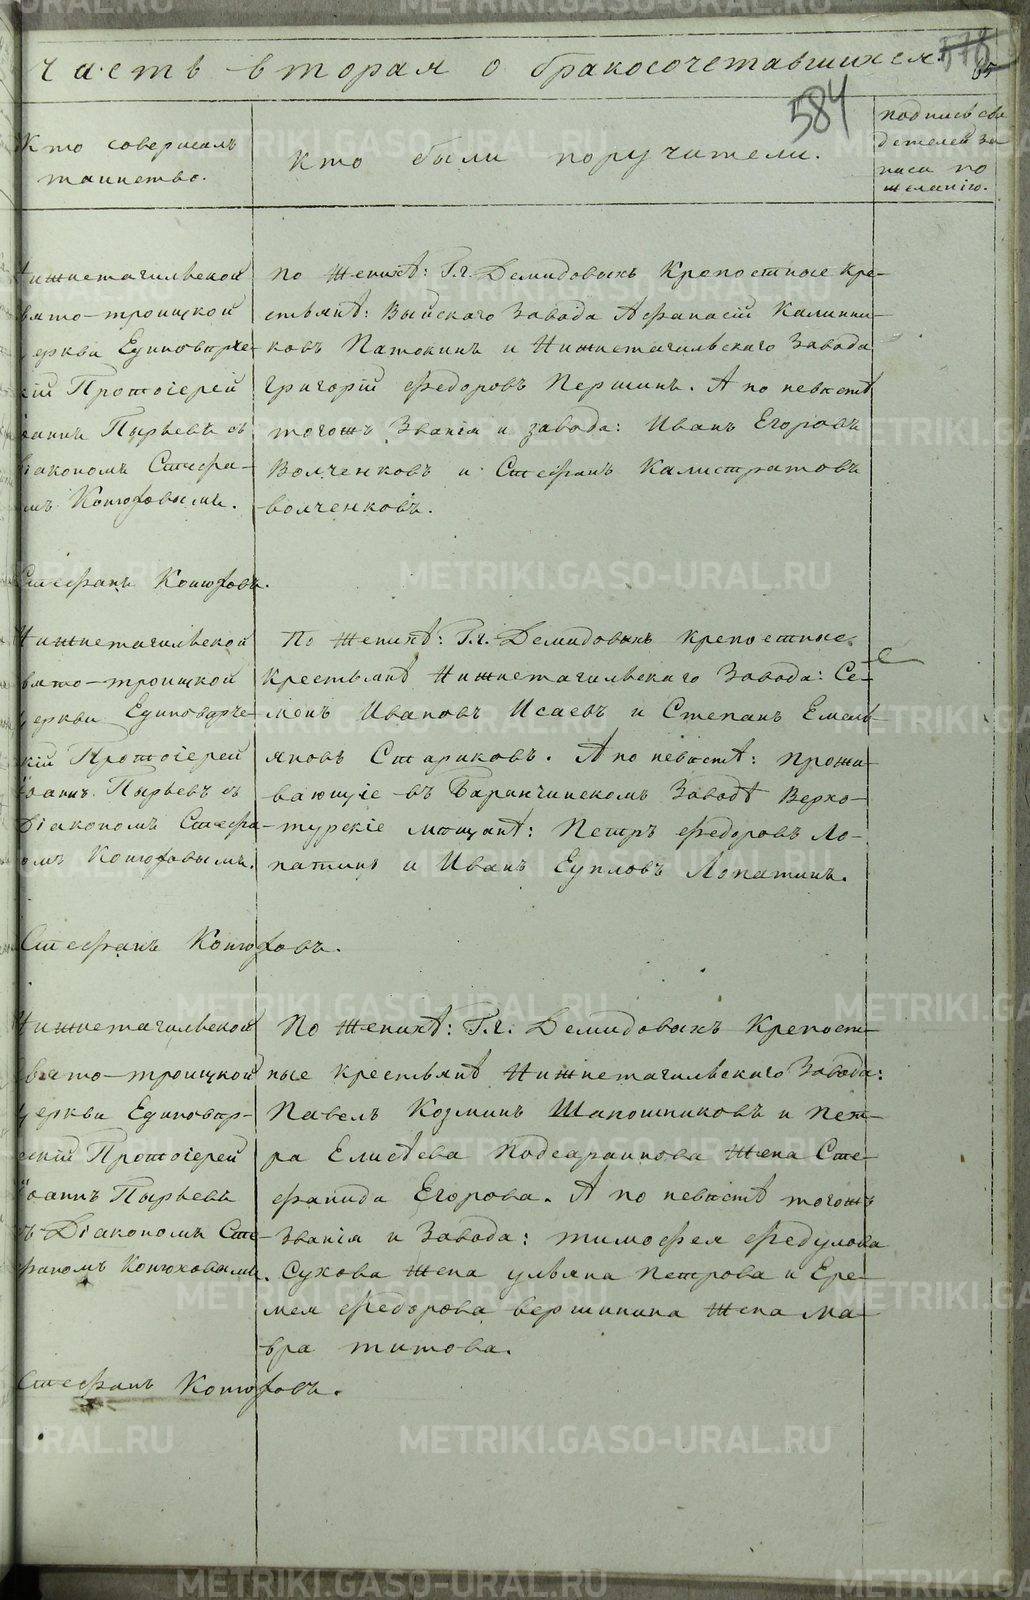 Часть вторая о бракосочетавшихся.
584
Кто совершалъ
таинство.
Кто были поручители.
подпись сви
детелей за
писи по
желанію.
Нижнетагильской
Свято-троицкой
церкви Единоверче-
скій Протоіерей
Іоаннъ Пырьевъ съ
Діакономъ Стефа-
номъ Конюховымъ.
Стефанъ Конюховъ.
По женихѣ: Г.г. Демидовыхъ Крепостные кре-
стьянѣ: Выйскаго Завода Афанасій Калинни-
ковъ Патокинъ и Нижнетагильскаго Завода
григорій Федоровъ Першинъ. А по невѣстѣ
тогожъ Званія и завода: Иванъ Егоровъ
Волченковъ и Стефанъ Калистратовъ
волченковъ.
Нижнетагильской
Свято-троицкой
церкви Единоверче-
скій Протоіерей
Іоаннъ Пырьевъ съ
Діакономъ Стефа-
номъ Конюховымъ.
Стефанъ Конюховъ.
По женихѣ: Г.г. Демидовыхъ крепостные
крестьянѣ Нижнетагильскаго Завода: Се-
менъ Ивановъ Исаевъ и Степанъ Емель-
яновъ Стариковъ. А по невѣстѣ: прожи-
вающіе въ Баранчинскомъ Заводѣ Верхо-
турскіе мѣщанѣ: Петръ Федоровъ Ло-
патинъ и Иванъ Еупловъ Лопатинъ.
Нижнетагильской
Свято-троицкой
церкви Единовер-
ческій Протоіерей
Іоаннъ Пырьевъ
съ Діакономъ Сте-
фаномъ Конюховымъ.
Стефанъ Конюховъ.
По женихѣ: Г.г. Демидовыхъ Крепост-
ные крестьянѣ Нижнетагильскаго Завода:
Павелъ Козминъ Шапошниковъ и пет-
ра Елисѣева Подсараннова Жена Сте-
фанида Егорова. А по невѣстѣ тогожъ
Званія и Завода: тимофея Федулова
Сухова Жена ульяна петрова и Ере-
мея Федорова вершинина Жена Ма-
вра титова.
METRIKI.GASO-URAL.RU